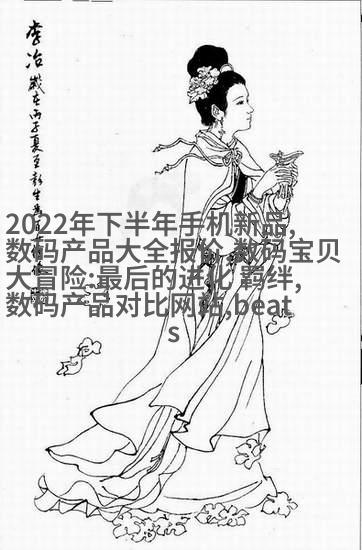 李冶
歲在丙子夏至彭生
2022年下半年手机新品,
数码产品大全报价,数码宝贝
大冒险:最后的进化 羁绊,
数码产品对比网站,beat
s